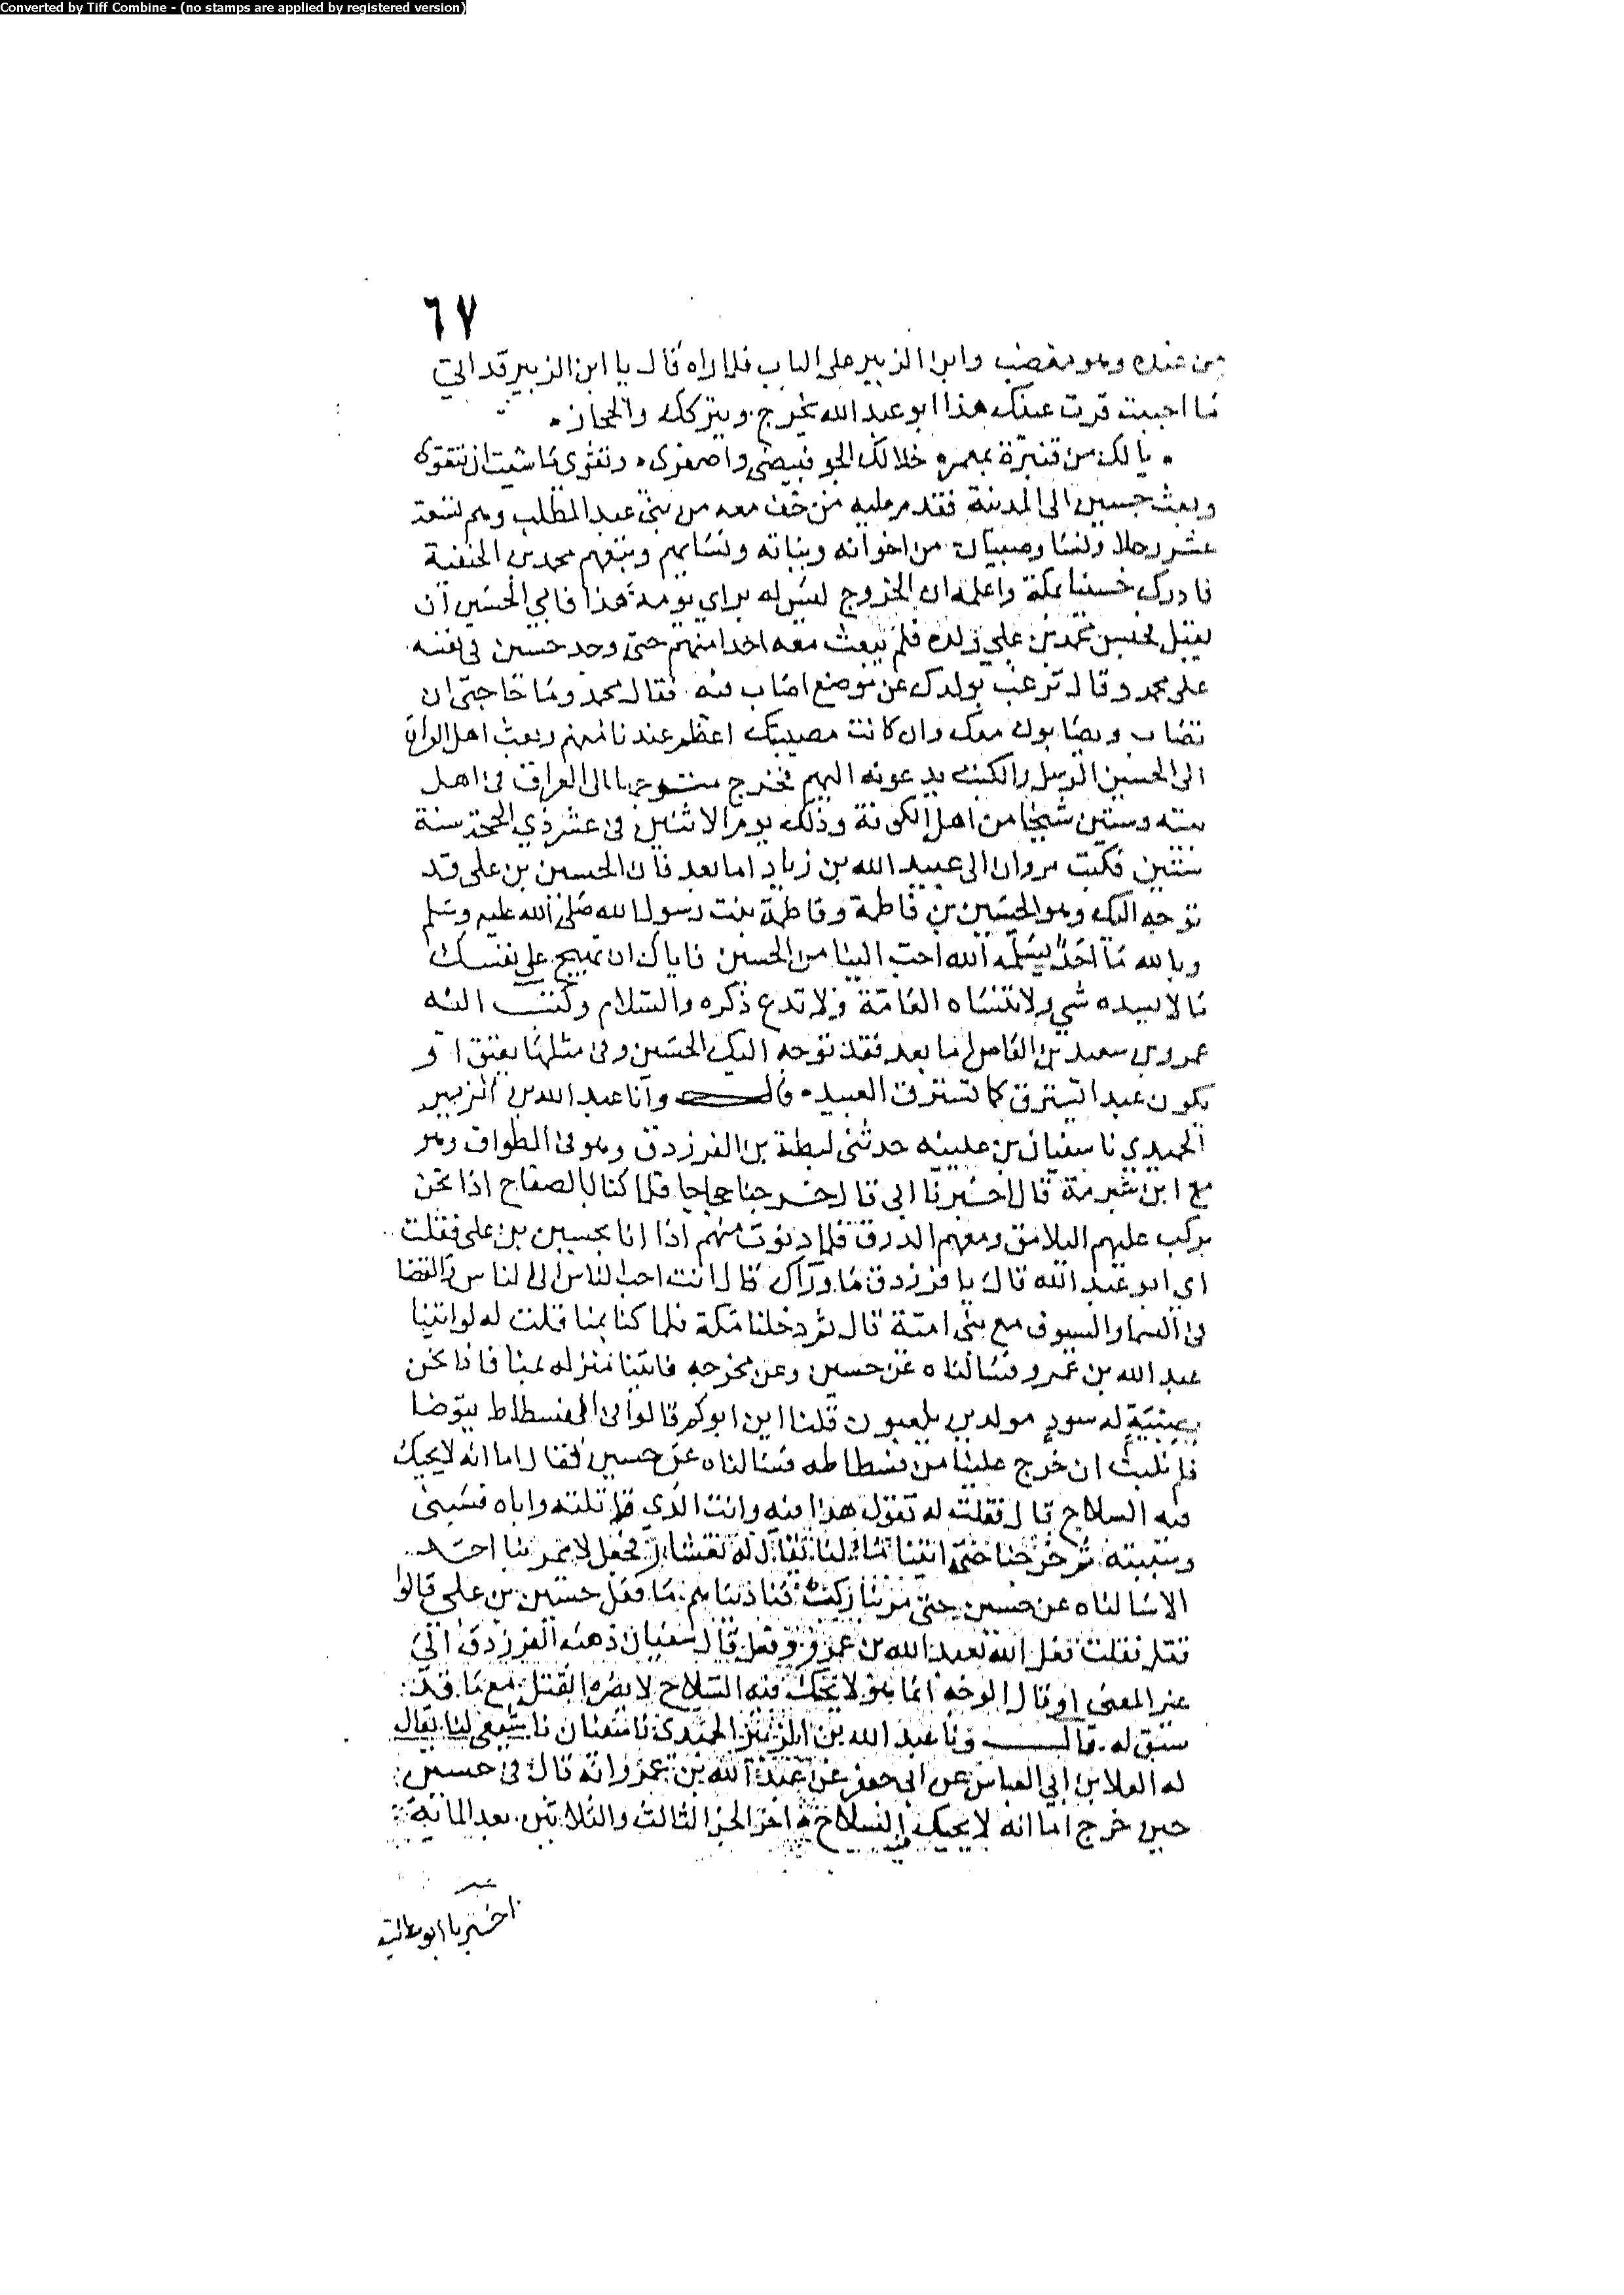 Converted by Tiff Combine - (no stamps are applied by registered version)
٦٧
من عنده وهو مغضب وابن الزبير على الباب فلما راه قال يا ابن الزبير قد اتى
ما احببت قرت عينك هذا ابو عبد الله يخرج ويتركك والحجاز
يا لك من قنبرة بمعمر خلا لك الجو فبيضي واصفري ونقري ما شيت ان تنقري
وبعث حسين الى المدينة فقدم عليه من خف معه من بني عبد المطلب وهم تسعة
عشر رجلا ونسا وصبيان من اخوانه وبناته ونسايهم وتبعهم محمد بن الحنفية
فادرك حسينا بمكة واعلمه ان الخروج ليس له براي يومه هذا فابى الحسين ان
يقبل فحبس محمد بن علي ولده فلم يبعث معه احدا منهم حتى وجد حسين في نفسه
على محمد وقال ترغب بولدك عن موضع اصاب فيه فقال محمد وما حاجتي ان
تصاب ويصابون معك وان كانت مصيبتك اعظم عندنا منهم وبعث اهل العراق
الى الحسين الرسل والكتب يدعونه اليهم فخرج متوجها الى العراق في اهل
بيته وستين شيخا من اهل الكوفة وذلك يوم الاثنين في عشر ذي الحجة سنة
ستين فكتب مروان الى عبيد الله بن زياد اما بعد فان الحسين بن علي قد
توجه اليك وهو الحسين بن فاطمة وفاطمة بنت رسول الله صلى الله عليه وسلم
وبالله ما احد يسلمه الله احب الينا من الحسين فاياك ان تهيج على نفسك
ما لا يسده شي ولا تنساه العامة ولا تدع ذكره والسلام وكتب اليه
عمرو بن سعيد بن العاص اما بعد فقد توجه اليك الحسين وفي مثلها يعتق او
يكون عبدا يسترق كما تسترق العبيد قال وانا عبد الله بن الزبير
الحميدي نا سفيان بن عيينه حدثني لبطة بن الفرزدق وهو في الطواف وهو
مع ابن شبرمة قال اخبرنا ابي قال خرجنا حجاجا فلما كنا بالصفاح اذا نحن
بركب عليهم اليلامق ومعهم الدرق فلما دنوت منهم اذا انا بحسين بن علي فقلت
اي ابو عبد الله قال يا فرزدق ما وراك قال انت احب الناس الى الناس والقضا
في السما والسيوف مع بني امية قال ثم دخلنا مكة فلما كنا بمنا قلت له لو اتينا
عبد الله بن عمرو فسالناه عن حسين وعن مخرجه فاتينا منزله بمنا فاذا نحن
بصبية له سود مولدين يلعبون قلنا اين ابوكم قالوا في الفسطاط يتوضا
فلم نلبث ان خرج علينا من فسطاطه فسالناه عن حسين فقال اما انه لا يحيك
فيه السلاح قال فقلت له تقول هذا فيه وانت الذي قاتلته واباه فسبني
وسببته ثم خرجنا حتى اتينا ماء لنا يقال له تعشار فجعل لا يمر بنا احد
الا سالناه عن حسين حتى مر بنا ركب فناديناهم ما فعل حسين بن علي قالوا
قتل فقلت فعل الله بعبد الله بن عمرو وفعل قال سفيان ذهب الفرزدق الى
غير المعنى او قال الوجه انما هو لا يحيك فيه السلاح لا يضره القتل مع ما قد
سبق له قال ونا عبد الله بن الزبير الحميدي نا سفيان نا شيعي لنا يقال
له العلا بن ابي العباس عن ابي جعفر عن عبد الله بن عمرو انه قال في حسين
حين خرج اما انه لا يحيك فيه السلاح اخر الجز الثالث والثلاثين بعد الماية
اخبرنا ابو غالب